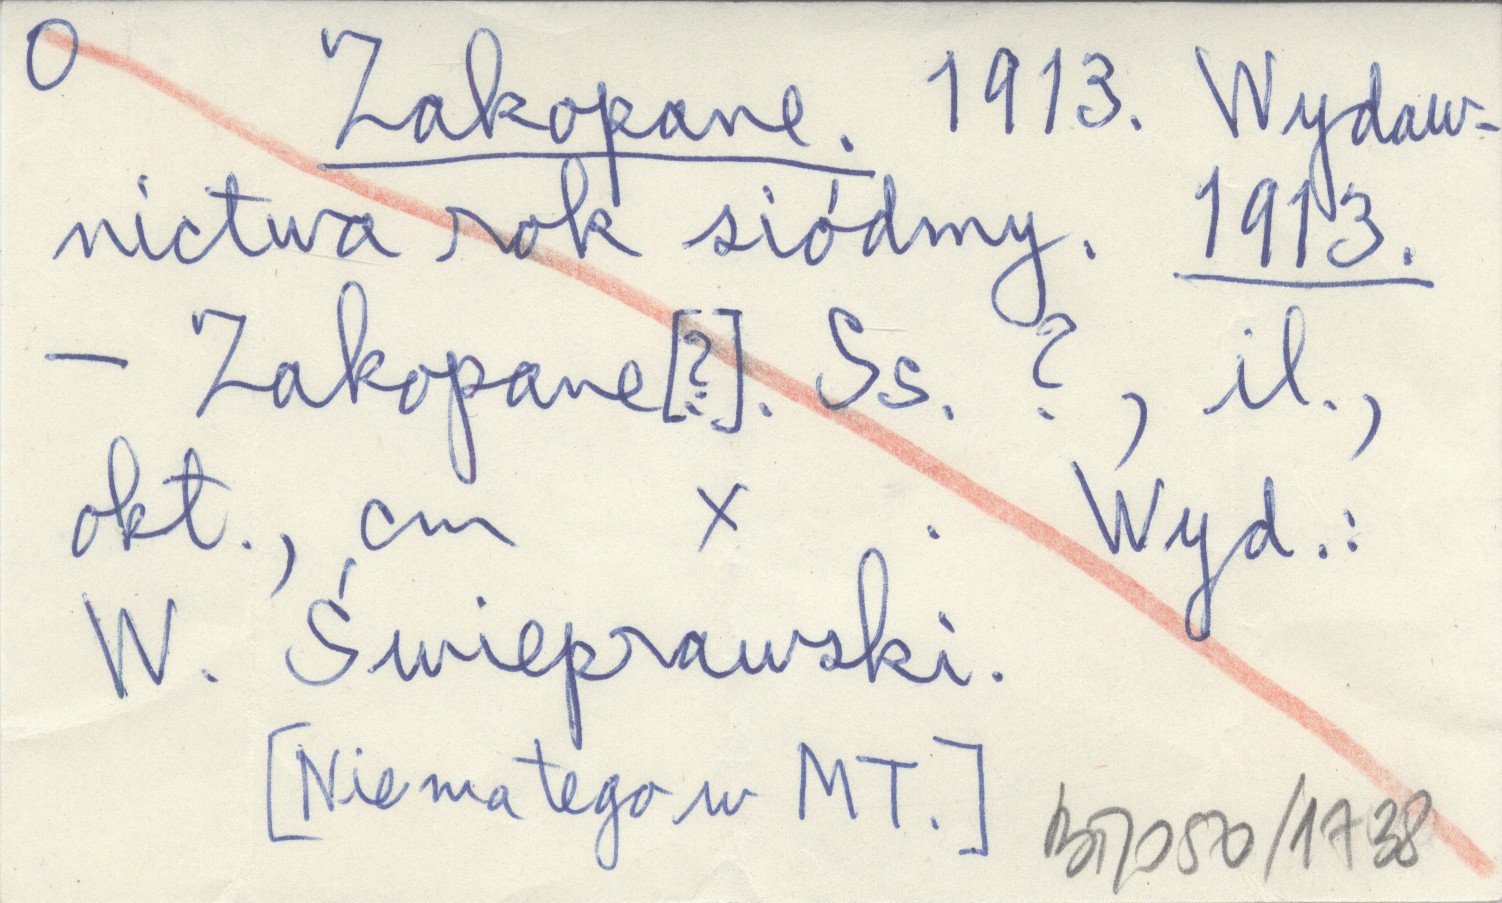 0 Zakopane. 1913. Wydaw-
nictwa rok siódmy. 1913.
– Zakopane[?]. Ss. ?, il.,
okt., cm x . Wyd.:
W. Świeprawski.
[Nie ma tego w MT.]
/1738